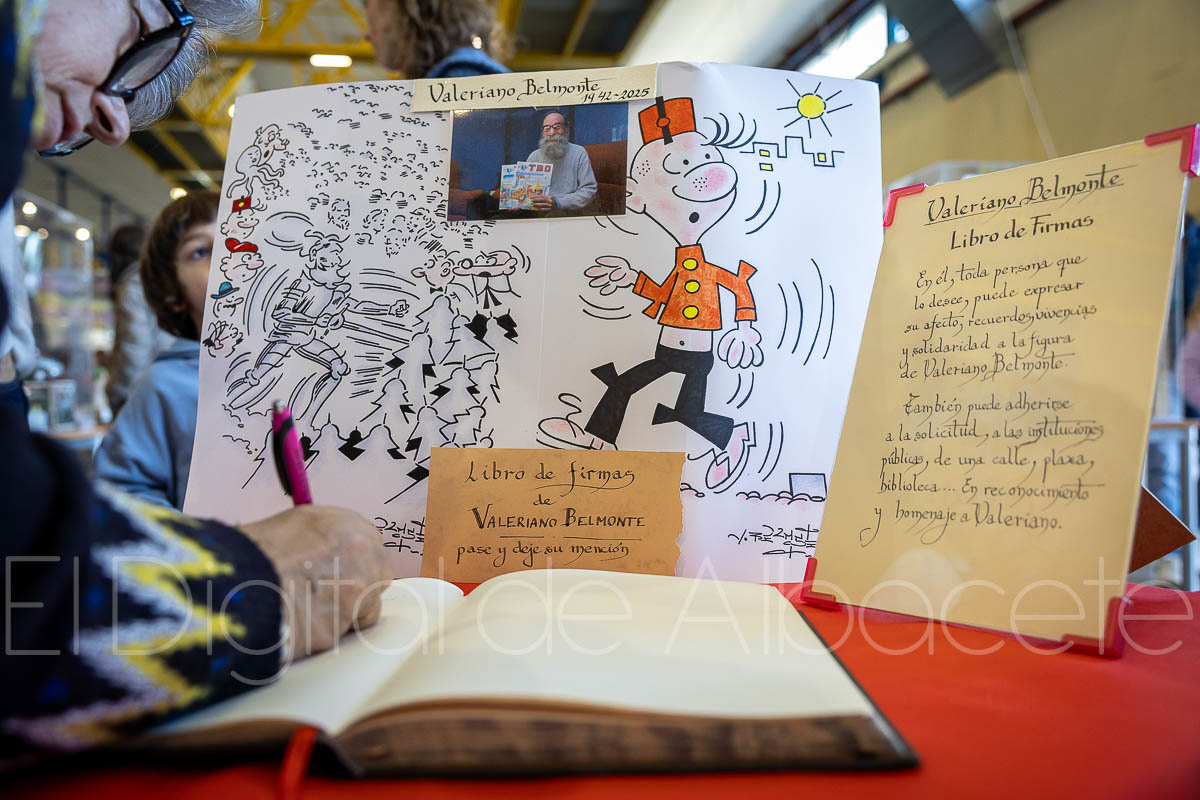 Valeriano Belmonte
1942-2025
TBO
Valeriano Belmonte
Libro de Firmas
En él, toda persona que
lo desee, puede expresar
su afecto, recuerdos, vivencias
y solidaridad a la figura
de Valeriano Belmonte.
También puede adherirse
a la solicitud, a las instituciones
públicas, de una calle, plaza,
biblioteca... En reconocimiento
y homenaje a Valeriano.
Libro de firmas
de
VALERIANO BELMONTE
pase y deje su mención
El Digital de Albacete